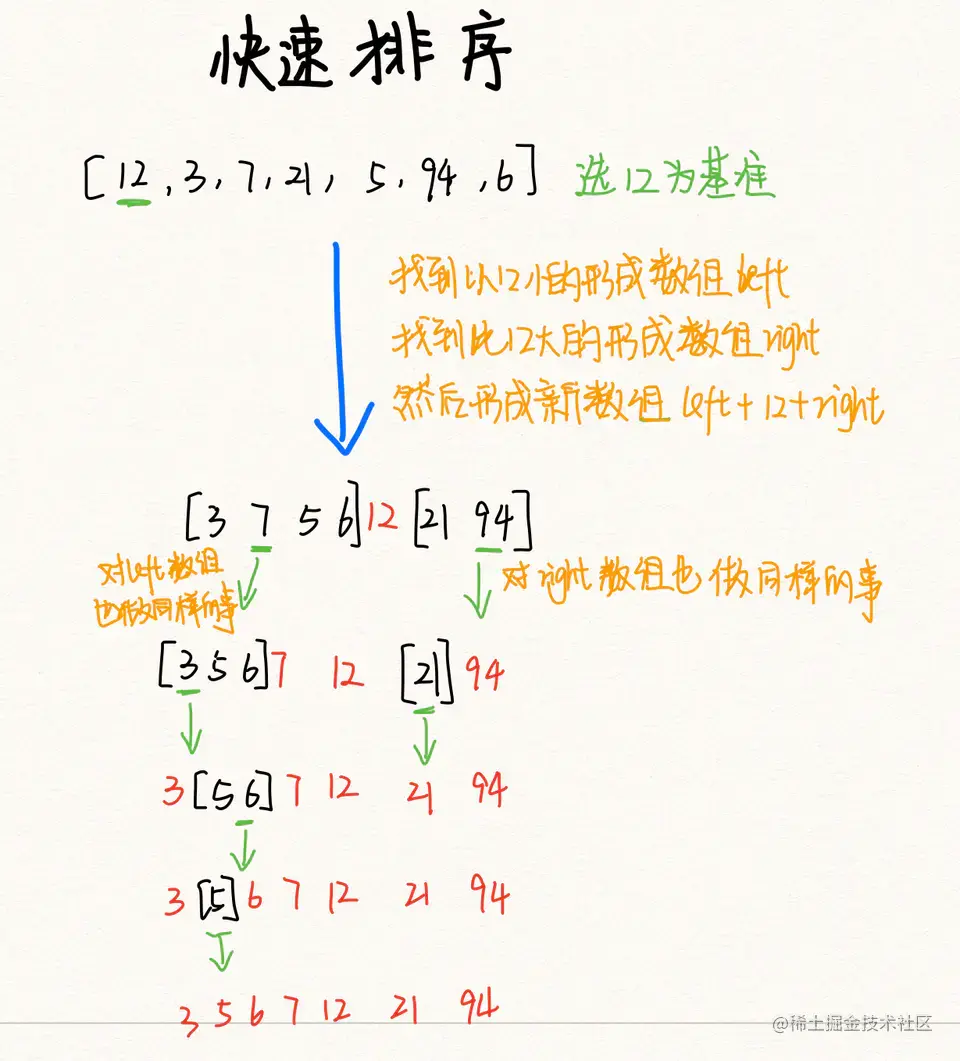 快速排序
[12,3,7,21,5,94,6] 选12为基准
找到以12小的形成数组left
找到比12大的形成数组right
然后形成新数组 left+12+right
[3 7 5 6]12[21 94]
对left数组
也做同样的事
对right数组也做同样的事
[3 5 6]7 12 [21]94
3[5 6]7 12 21 94
3[5]6 7 12 21 94
3 5 6 7 12 21 94
@稀土掘金技术社区